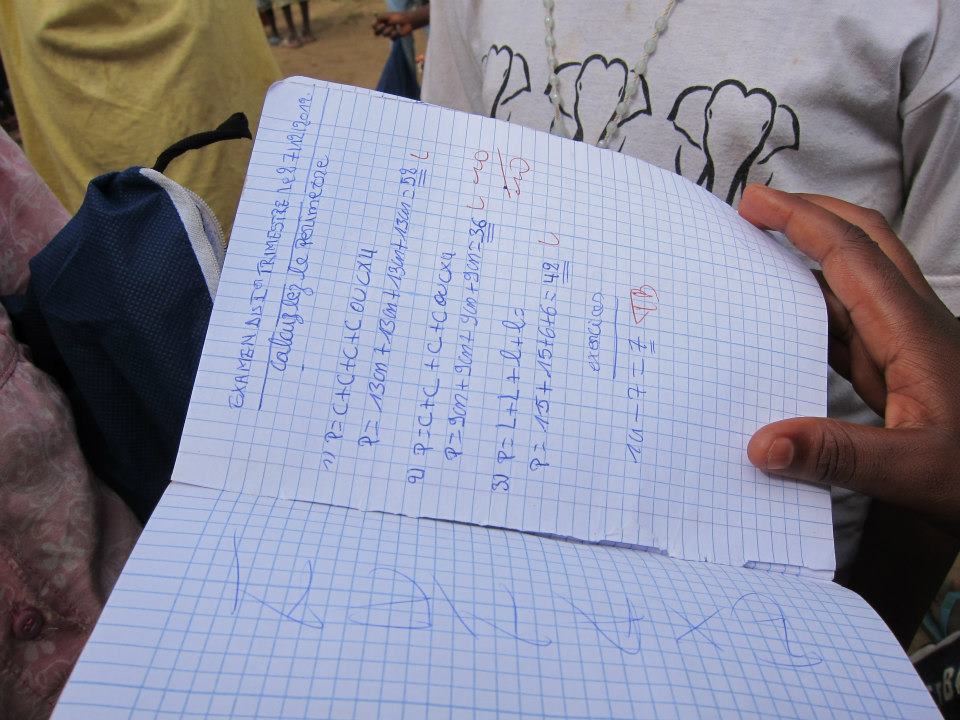 EXAMEN DU 1er TRIMESTRE
Calculez le Perimetre
1) P = C+C+C+C ou C x 4
P = 13cm + 13cm + 13cm + 13cm = 52
2) P = C + C + C + C ou C x 4
P = 9m + 9cm + 9cm + 9m = 36
3) P = L + L + l + l =
P = 15 + 15 + 6 + 6 = 42
exercices
14 - 7 = 7 TB